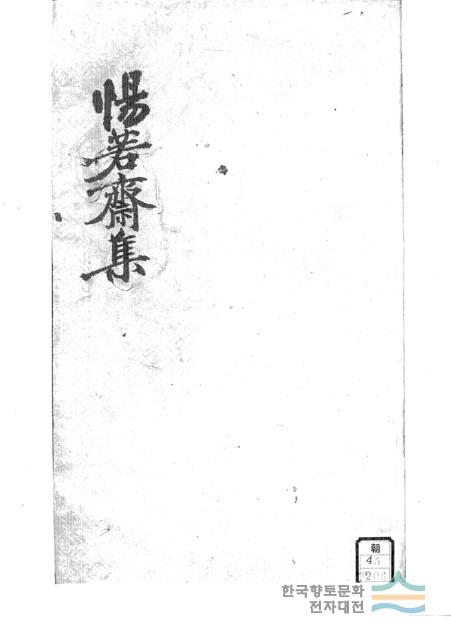 惕若齋集
朝
45
한국향토문화
전자대전